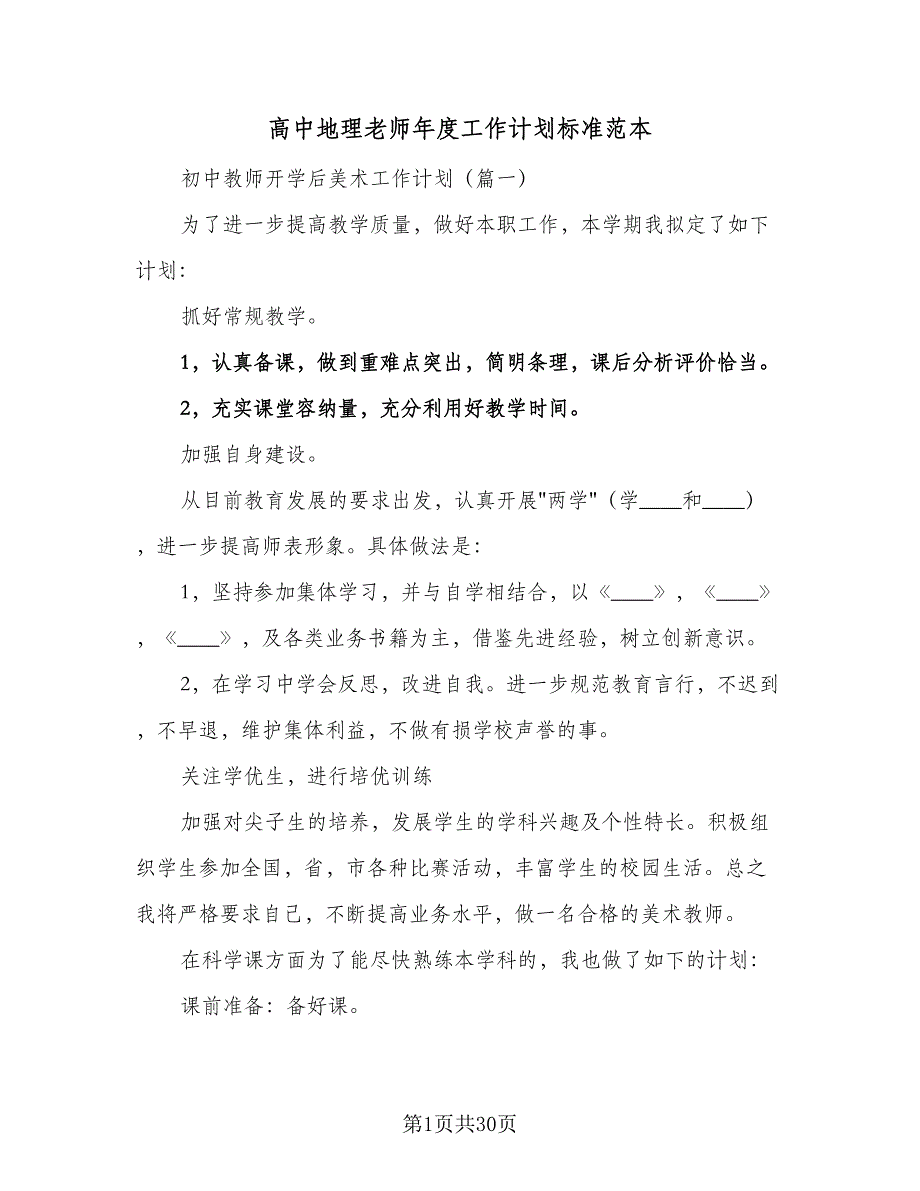 高中地理老师年度工作计划标准范本
初中教师开学后美术工作计划（篇一）
为了进一步提高教学质量，做好本职工作，本学期我拟定了如下
计划：
抓好常规教学。
1，认真备课，做到重难点突出，简明条理，课后分析评价恰当。
2，充实课堂容纳量，充分利用好教学时间。
加强自身建设。
从目前教育发展的要求出发，认真开展"两学"（学____和____）
，进一步提高师表形象。具体做法是：
1，坚持参加集体学习，并与自学相结合，以《____》，《____》
，《____》，及各类业务书籍为主，借鉴先进经验，树立创新意识。
2，在学习中学会反思，改进自我。进一步规范教育言行，不迟到
，不早退，维护集体利益，不做有损学校声誉的事。
关注学优生，进行培优训练
加强对尖子生的培养，发展学生的学科兴趣及个性特长。积极组
织学生参加全国，省，市各种比赛活动，丰富学生的校园生活。总之
我将严格要求自己，不断提高业务水平，做一名合格的美术教师。
在科学课方面为了能尽快熟练本学科的，我也做了如下的计划：
课前准备：备好课。
第1页共30页